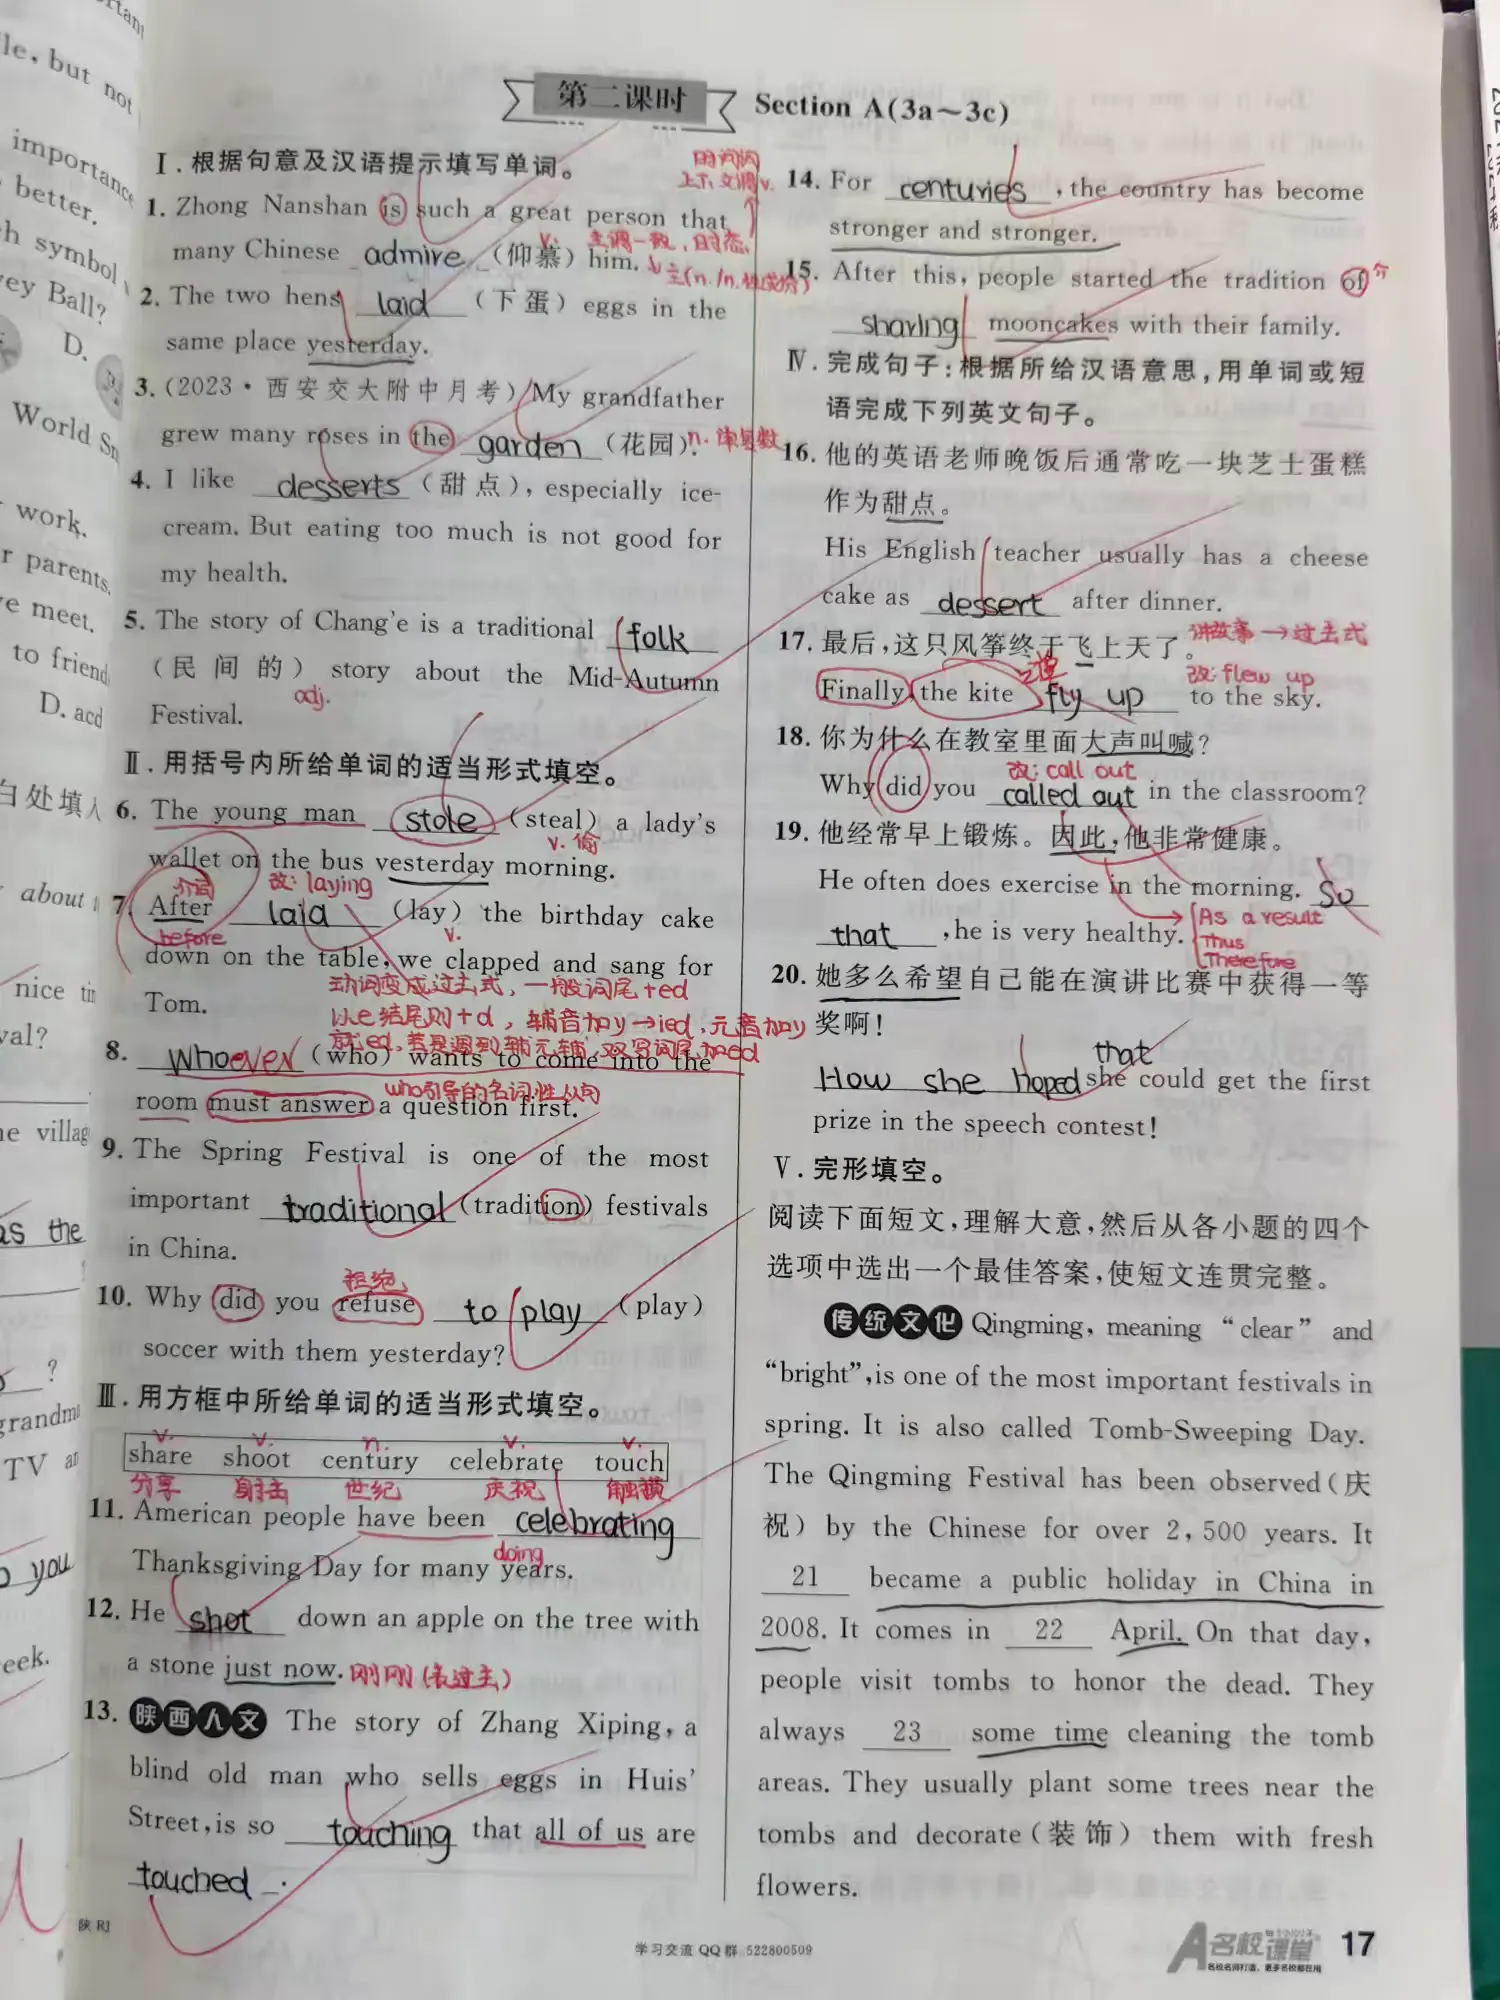 第二课时 Section A(3a～3c)
Ⅰ.根据句意及汉语提示填写单词。
1. Zhong Nanshan is such a great person that
many Chinese admire (仰慕) him.
v. 主谓一致，时态
2. The two hens laid (下蛋) eggs in the
same place yesterday.
3. (2023·西安交大附中月考) My grandfather
grew many roses in the garden (花园).
n. 单复数
4. I like desserts (甜点), especially ice-
cream. But eating too much is not good for
my health.
5. The story of Chang'e is a traditional folk
(民间的) story about the Mid-Autumn
adj.
Festival.
Ⅱ.用括号内所给单词的适当形式填空。
6. The young man stole (steal) a lady's
v. 偷
wallet on the bus yesterday morning.
介词 改: laying
7. After laid (lay) the birthday cake
before v.
down on the table, we clapped and sang for
动词变成过去式，一般词尾+ed
Tom.
以e结尾则+d，辅音加y→ied，元音加y
就ed，若是遇到辅元辅，双写词尾加ed
8. whoever (who) wants to come into the
who引导的名词性从句
room must answer a question first.
9. The Spring Festival is one of the most
important traditional (tradition) festivals
in China.
拒绝
10. Why did you refuse to play (play)
soccer with them yesterday?
Ⅲ.用方框中所给单词的适当形式填空。
v. v. n. v. v.
share shoot century celebrate touch
分享 射击 世纪 庆祝 触摸
11. American people have been celebrating
doing
Thanksgiving Day for many years.
12. He shot down an apple on the tree with
a stone just now. 刚刚(表过去)
13. 陕西人文 The story of Zhang Xiping, a
blind old man who sells eggs in Huis'
Street, is so touching that all of us are
touched .
14. For centuries , the country has become
stronger and stronger.
15. After this, people started the tradition of
介
sharing mooncakes with their family.
Ⅳ.完成句子:根据所给汉语意思,用单词或短
语完成下列英文句子。
16. 他的英语老师晚饭后通常吃一块芝士蛋糕
作为甜点。
His English teacher usually has a cheese
cake as dessert after dinner.
17. 最后,这只风筝终于飞上天了。
讲故事→过去式
改: flew up
Finally the kite fly up to the sky.
18. 你为什么在教室里面大声叫喊?
改: call out
Why did you called out in the classroom?
19. 他经常早上锻炼。因此,他非常健康。
He often does exercise in the morning. So
that , he is very healthy.
As a result
Thus
Therefore
20. 她多么希望自己能在演讲比赛中获得一等
奖啊!
that
How she hoped she could get the first
prize in the speech contest!
Ⅴ.完形填空。
阅读下面短文,理解大意,然后从各小题的四个
选项中选出一个最佳答案,使短文连贯完整。
传统文化 Qingming, meaning "clear" and
"bright", is one of the most important festivals in
spring. It is also called Tomb-Sweeping Day.
The Qingming Festival has been observed(庆
祝) by the Chinese for over 2,500 years. It
21 became a public holiday in China in
2008. It comes in 22 April. On that day,
people visit tombs to honor the dead. They
always 23 some time cleaning the tomb
areas. They usually plant some trees near the
tombs and decorate(装饰) them with fresh
flowers.
陕 RJ
学习交流QQ群 522800509
名校课堂
名校名师打造，更多名校都在用
17